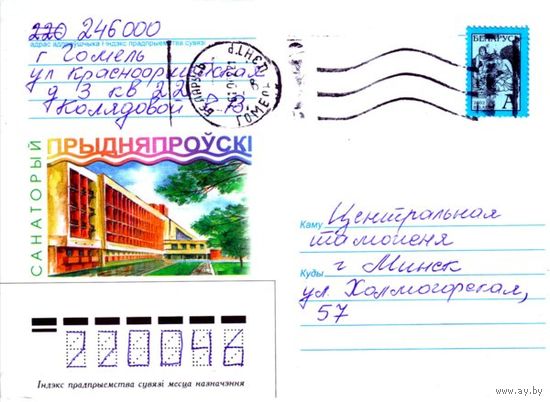 220 246000
адрас адпраўшчыка і індэкс прадпрыемства сувязі
г Гомель
ул Красноармейская
д 3 кв 22
Колядовой
БЕЛАРУСЬ
ГОМЕЛЬ
БЕЛАРУСЬ
А
САНАТОРЫЙ
ПРЫДНЯПРОЎСКІ
Каму Центральная
таможеня
Куды г Минск
ул. Холмогорская,
57
220046
Індэкс прадпрыемства сувязі месца назначэння
www.ay.by